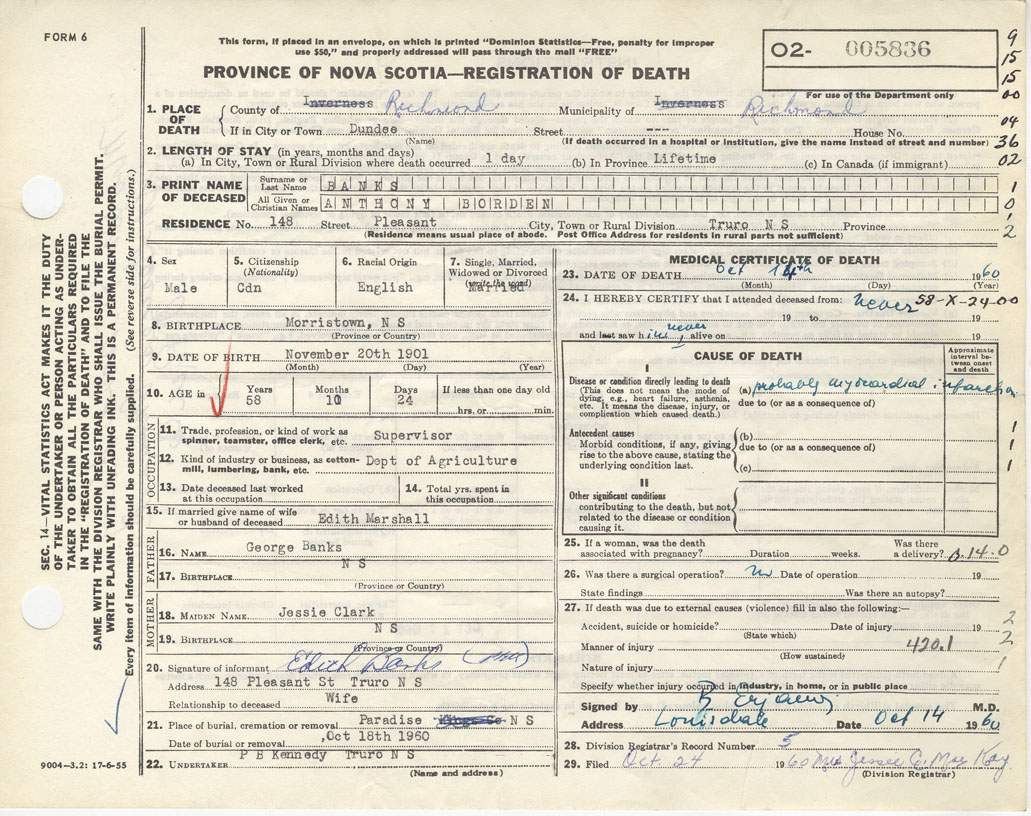 FORM 6
This form, if placed in an envelope, on which is printed "Dominion Statistics—Free, penalty for improper
use $50," and properly addressed will pass through the mail "FREE"
PROVINCE OF NOVA SCOTIA—REGISTRATION OF DEATH
O2- 005836
For use of the Department only
9
15
15
00
04
36
02
1
0
2
1. PLACE OF DEATH
County of Inverness Richmond Municipality of Inverness Richmond
If in City or Town Dundee Street --- House No.
(Name) (If death occurred in a hospital or institution, give the name instead of street and number)
2. LENGTH OF STAY (in years, months and days)
(a) In City, Town or Rural Division where death occurred 1 day (b) In Province Lifetime (c) In Canada (if immigrant)
3. PRINT NAME OF DECEASED
Surname or Last Name BANKS
All Given or Christian Names ANTHONY BORDEN
RESIDENCE No. 148 Street Pleasant City, Town or Rural Division Truro N S Province
(Residence means usual place of abode. Post Office Address for residents in rural parts not sufficient)
4. Sex
Male
5. Citizenship
(Nationality)
Cdn
6. Racial Origin
English
7. Single, Married,
Widowed or Divorced
(write the word)
Married
8. BIRTHPLACE Morristown, N S
(Province or Country)
9. DATE OF BIRTH November 20th 1901
(Month) (Day) (Year)
10. AGE in
Years 58
Months 10
Days 24
If less than one day old
hrs. or min.
OCCUPATION
11. Trade, profession, or kind of work as
spinner, teamster, office clerk, etc. Supervisor
12. Kind of industry or business, as cotton-
mill, lumbering, bank, etc. Dept of Agriculture
13. Date deceased last worked
at this occupation
14. Total yrs. spent in
this occupation
15. If married give name of wife
or husband of deceased Edith Marshall
FATHER
16. NAME George Banks
17. BIRTHPLACE N S
(Province or Country)
MOTHER
18. MAIDEN NAME Jessie Clark
19. BIRTHPLACE N S
(Province or Country)
20. Signature of informant Edith Banks (Mrs)
Address 148 Pleasant St Truro N S
Relationship to deceased Wife
21. Place of burial, cremation or removal Paradise Kings Co N S
Date of burial or removal ,Oct 18th 1960
22. UNDERTAKER P B Kennedy Truro N S
(Name and address)
MEDICAL CERTIFICATE OF DEATH
23. DATE OF DEATH Oct 14th 1960
(Month) (Day) (Year)
24. I HEREBY CERTIFY that I attended deceased from: never 58-X-24-00
19 to 19
and last saw him never alive on 19
CAUSE OF DEATH
Approximate interval between onset and death
I
Disease or condition directly leading to death
(This does not mean the mode of dying, e.g., heart failure, asthenia, etc. It means the disease, injury, or complication which caused death.)
(a) probably myocardial infarction
due to (or as a consequence of)
Antecedent causes
Morbid conditions, if any, giving rise to the above cause, stating the underlying condition last.
(b)
due to (or as a consequence of)
(c)
1
1
1
II
Other significant conditions
contributing to the death, but not
related to the disease or condition
causing it.
25. If a woman, was the death
associated with pregnancy? Duration weeks. Was there a delivery? 0.14.0
26. Was there a surgical operation? no Date of operation 19
State findings Was there an autopsy?
27. If death was due to external causes (violence) fill in also the following:—
Accident, suicide or homicide? Date of injury 19 2
(State which)
Manner of injury 420.1 2
(How sustained)
Nature of injury 1
Specify whether injury occurred in industry, in home, or in public place
Signed by M.D.
Address Louisdale Date Oct 14 1960
28. Division Registrar's Record Number 5
29. Filed Oct. 24 1960 Mrs Jessie C. MacKay
(Division Registrar)
SEC. 14—VITAL STATISTICS ACT MAKES IT THE DUTY
OF THE UNDERTAKER OR PERSON ACTING AS UNDER-
TAKER TO OBTAIN ALL THE PARTICULARS REQUIRED
IN THE "REGISTRATION OF DEATH" AND TO FILE THE
SAME WITH THE DIVISION REGISTRAR WHO SHALL ISSUE THE BURIAL PERMIT.
WRITE PLAINLY WITH UNFADING INK. THIS IS A PERMANENT RECORD.
Every item of information should be carefully supplied. (See reverse side for instructions.)
9004-3.2: 17-6-55